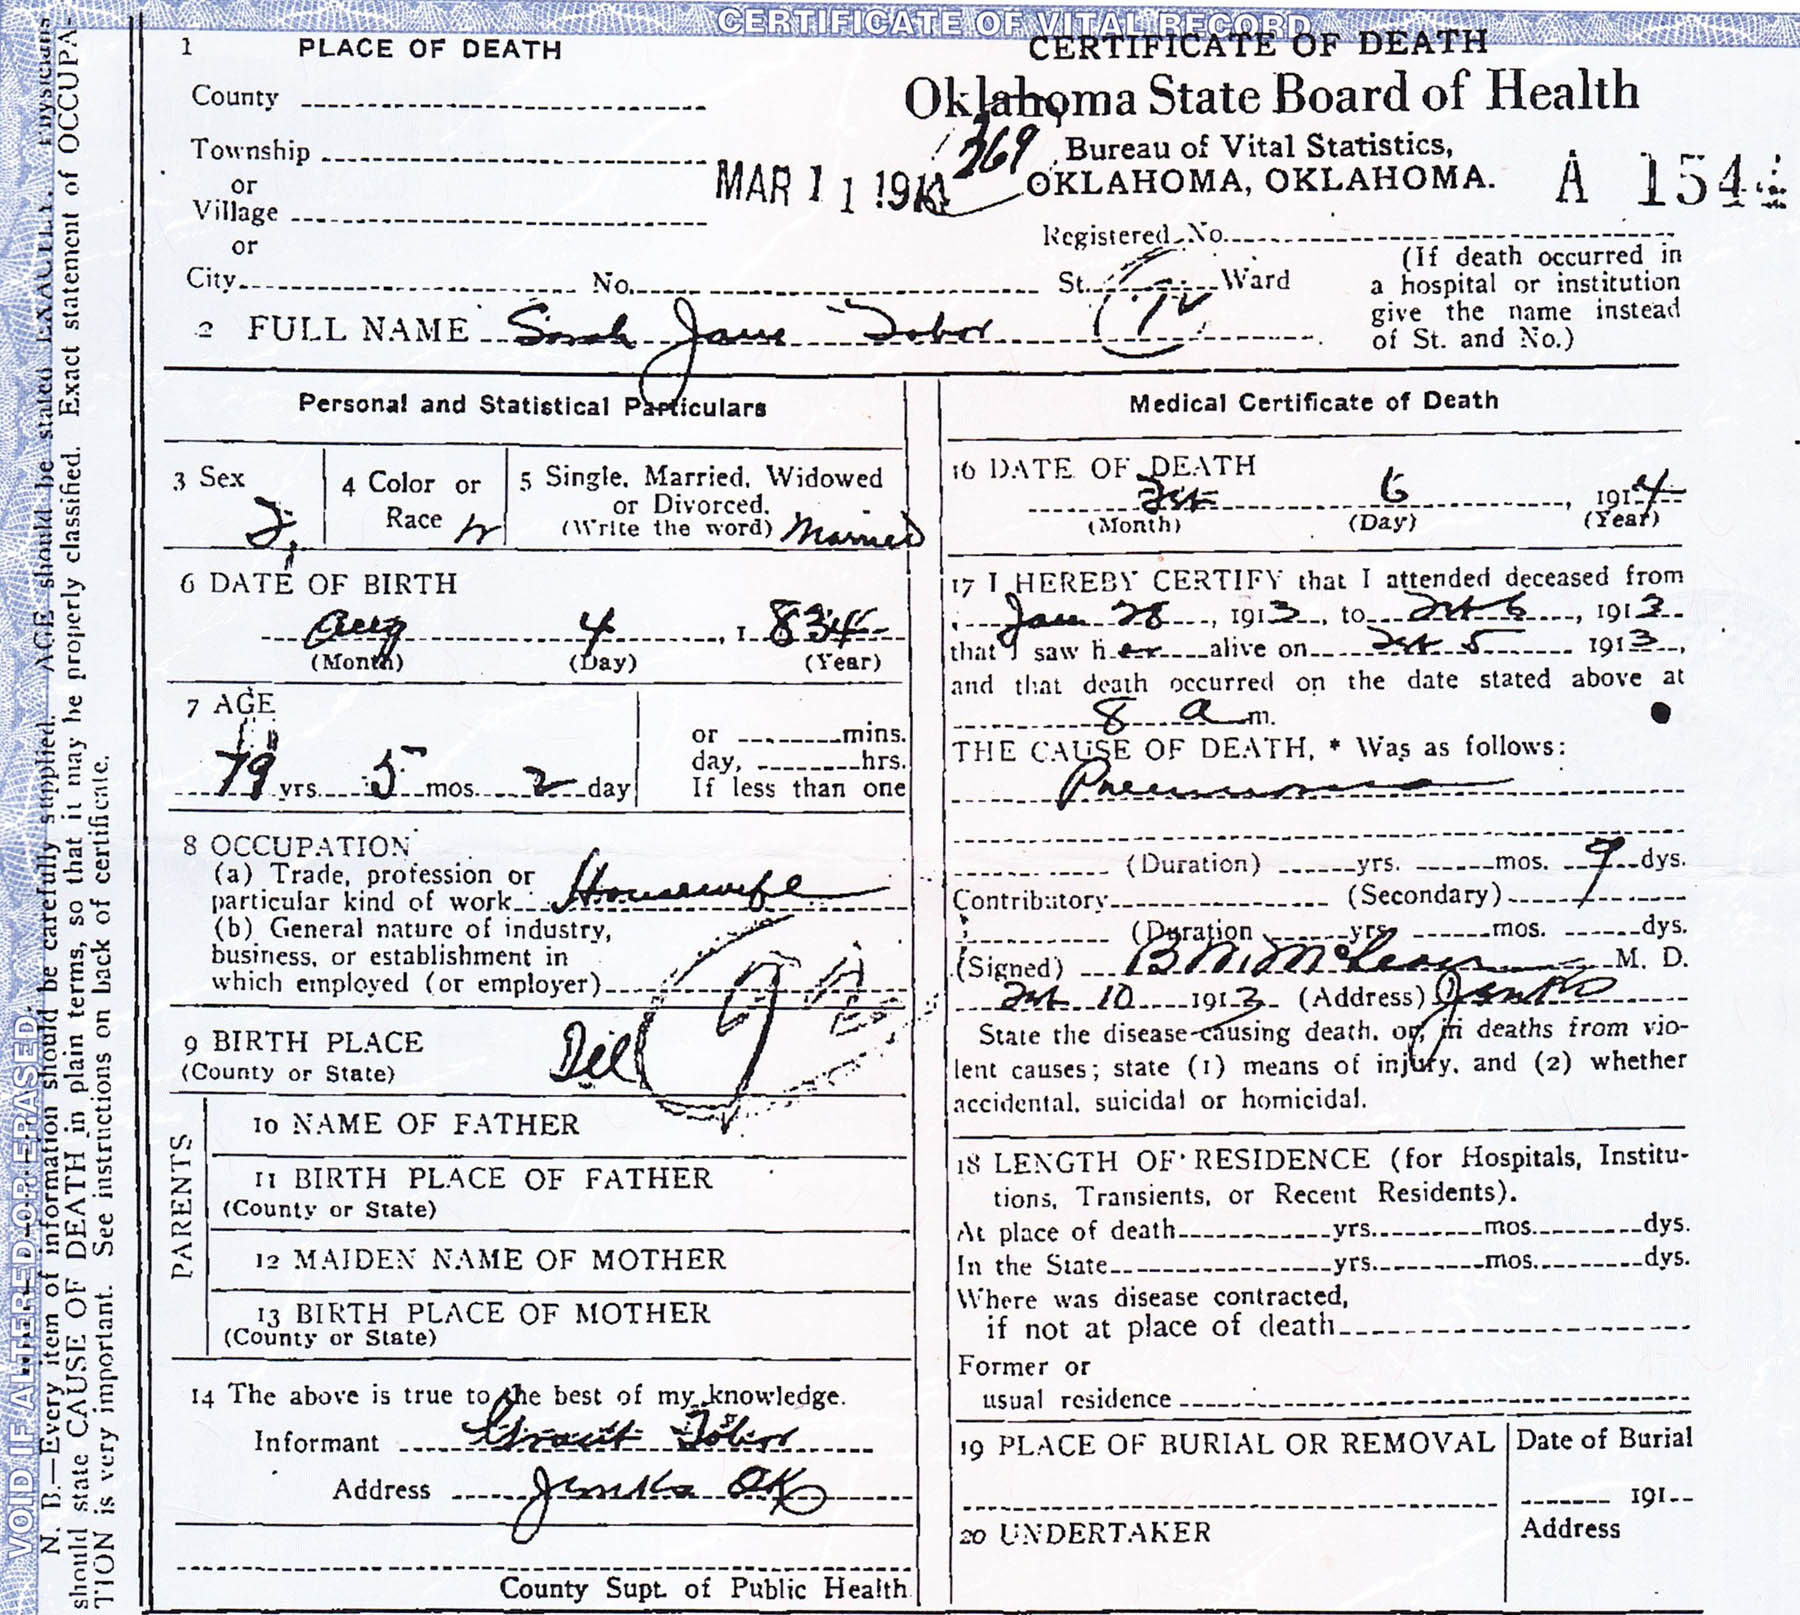 CERTIFICATE OF VITAL RECORD
1 PLACE OF DEATH
CERTIFICATE OF DEATH
Oklahoma State Board of Health
Bureau of Vital Statistics,
OKLAHOMA, OKLAHOMA.
County
Township
or
Village
or
City No. St. Ward
MAR 11 191
369
A 154
Registered No.
(If death occurred in
a hospital or institution
give the name instead
of St. and No.)
2 FULL NAME Sarah Jane Tabor
Personal and Statistical Particulars
3 Sex F.
4 Color or
Race W
5 Single, Married, Widowed
or Divorced.
(Write the word) Married
6 DATE OF BIRTH
Aug 4, 1834
(Month) (Day) (Year)
7 AGE
79 yrs. 5 mos. 2 day
or mins.
day, hrs.
If less than one
8 OCCUPATION
(a) Trade, profession or
particular kind of work Housewife
(b) General nature of industry,
business, or establishment in
which employed (or employer)
9 BIRTH PLACE
(County or State)
PARENTS
10 NAME OF FATHER
11 BIRTH PLACE OF FATHER
(County or State)
12 MAIDEN NAME OF MOTHER
13 BIRTH PLACE OF MOTHER
(County or State)
14 The above is true to the best of my knowledge.
Informant Grant Tabor
Address Jenks OK
County Supt. of Public Health
Medical Certificate of Death
16 DATE OF DEATH
Feb 6, 1914
(Month) (Day) (Year)
17 I HEREBY CERTIFY that I attended deceased from
Jan 28, 1913, to Feb 6, 1913
that I saw her alive on Feb 5 1913,
and that death occurred on the date stated above at
8 a m.
THE CAUSE OF DEATH, * Was as follows:
Pneumonia
(Duration) yrs. mos. 9 dys.
Contributory (Secondary)
(Duration yrs. mos. dys.
(Signed) B M M. D.
Feb 10 1913 (Address) Jenks
State the disease causing death, or, in deaths from vio-
lent causes; state (1) means of injury, and (2) whether
accidental, suicidal or homicidal.
18 LENGTH OF RESIDENCE (for Hospitals, Institu-
tions, Transients, or Recent Residents).
At place of death yrs. mos. dys.
In the State yrs. mos. dys.
Where was disease contracted,
if not at place of death
Former or
usual residence
19 PLACE OF BURIAL OR REMOVAL
Date of Burial
191
20 UNDERTAKER
Address
VOID IF ALTERED OR ERASED.
N. B.—Every item of information should be carefully supplied. AGE should be stated EXACTLY. Physicians
should state CAUSE OF DEATH in plain terms, so that it may be properly classified. Exact statement of OCCUPA-
TION is very important. See instructions on back of certificate.